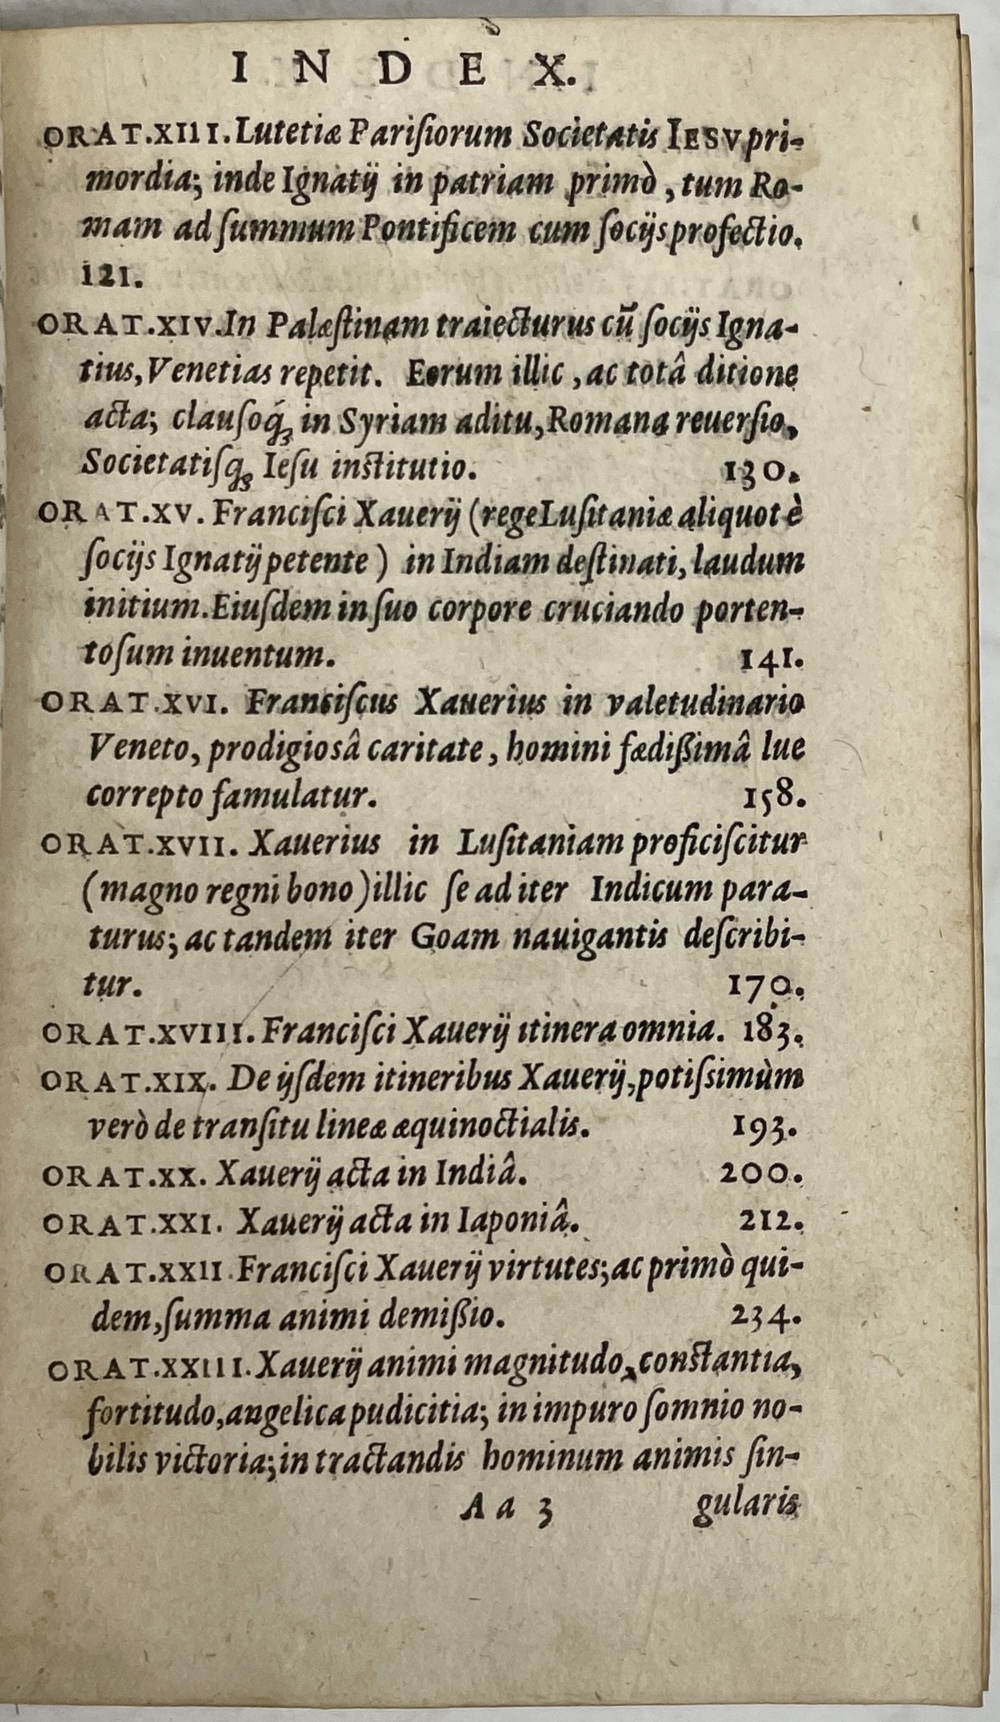 I N D E X.
ORAT.XIII. Lutetiæ Pariſiorum Societatis IESV pri-
mordia; inde Ignatij in patriam primò, tum Ro-
mam ad ſummum Pontificem cum ſocijs profectio.
121.
ORAT.XIV. In Palæſtinam traiecturus cū ſocijs Igna-
tius, Venetias repetit. Eorum illic, ac totâ ditione
acta; clauſoq́; in Syriam aditu, Romana reuerſio,
Societatiſq; Ieſu inſtitutio. 130.
ORAT.XV. Franciſci Xauerij (rege Luſitaniæ aliquot è
ſocijs Ignatij petente) in Indiam deſtinati, laudum
initium. Eiuſdem in ſuo corpore cruciando porten-
toſum inuentum. 141.
ORAT.XVI. Franciſcus Xauerius in valetudinario
Veneto, prodigiosâ caritate, homini fædißimâ lue
correpto famulatur. 158.
ORAT.XVII. Xauerius in Luſitaniam proficiſcitur
(magno regni bono) illic ſe ad iter Indicum para-
turus; ac tandem iter Goam nauigantis deſcribi-
tur. 170.
ORAT.XVIII. Franciſci Xauerij itinera omnia. 183.
ORAT.XIX. De ijſdem itineribus Xauerij, potiſsimùm
verò de tranſitu lineæ æquinoctialis. 193.
ORAT.XX. Xauerij acta in Indiâ. 200.
ORAT.XXI. Xauerij acta in Iaponiâ. 212.
ORAT.XXII. Franciſci Xauerij virtutes; ac primò qui-
dem, ſumma animi demißio. 234.
ORAT.XXIII. Xauerij animi magnitudo, conſtantia,
fortitudo, angelica pudicitia; in impuro ſomnio no-
bilis victoria; in tractandis hominum animis ſin-
A a 3 gularis